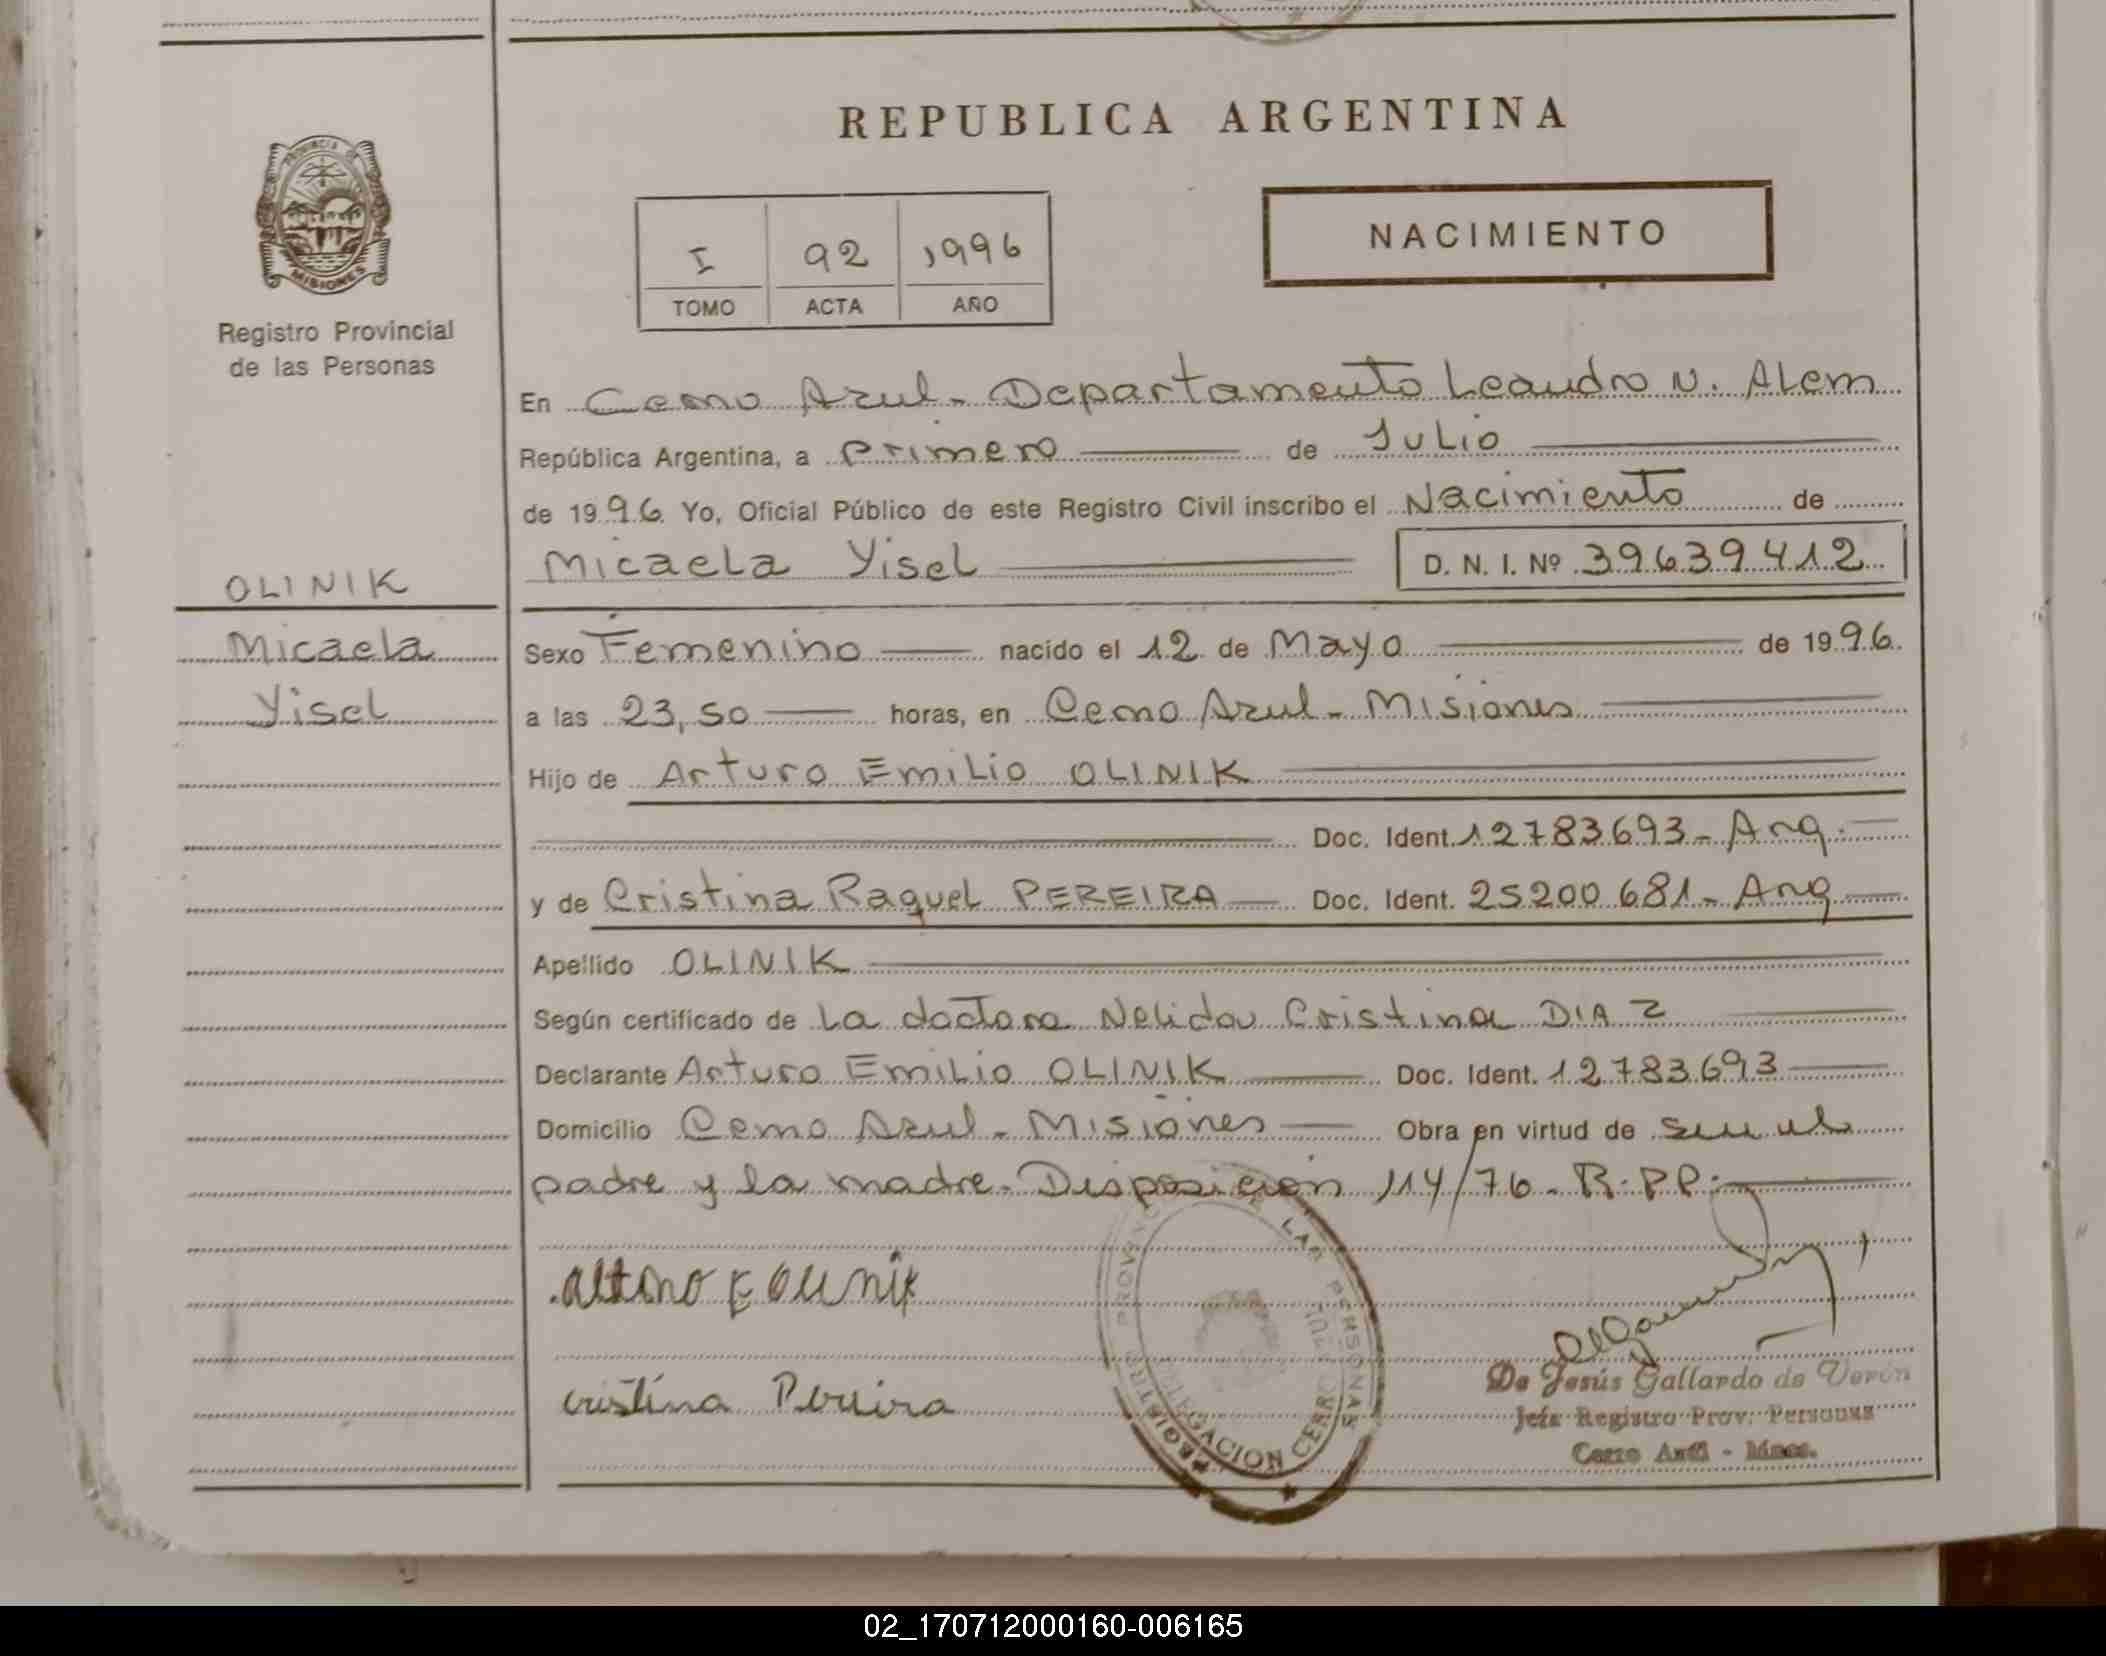 REPUBLICA ARGENTINA
PROVINCIA DE
MISIONES
Registro Provincial
de las Personas
I 92 1996
TOMO ACTA AÑO
NACIMIENTO
En Cerro Azul - Departamento Leandro N. Alem
República Argentina, a primero de Julio
de 1996 Yo, Oficial Público de este Registro Civil inscribo el Nacimiento de
Micaela Yisel D. N. I. Nº 39639412
OLINIK
Micaela
Yisel
Sexo Femenino nacido el 12 de Mayo de 1996.
a las 23,50 horas, en Cerro Azul - Misiones
Hijo de Arturo Emilio OLINIK
Doc. Ident. 12783693 - Arg.
y de Cristina Raquel PEREIRA Doc. Ident. 25200681 - Arg
Apellido OLINIK
Según certificado de La doctora Nelida Cristina DIAZ
Declarante Arturo Emilio OLINIK Doc. Ident. 12783693
Domicilio Cerro Azul - Misiones Obra en virtud de ser el
padre y la madre. Disposicion 114/76 - R.P.P.
Arturo E Olinik
Cristina Pereira
REGISTRO PROVINCIAL DE LAS PERSONAS
DELEGACION CERRO AZUL
De Jesús Gallardo de Verón
Jefa Registro Prov. Personas
Cerro Azul - Mnes.
02_170712000160-006165